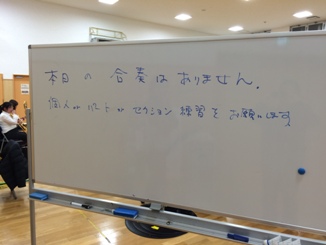 本日の合奏はありません。
個人 or パート or セクション練習をお願いします。